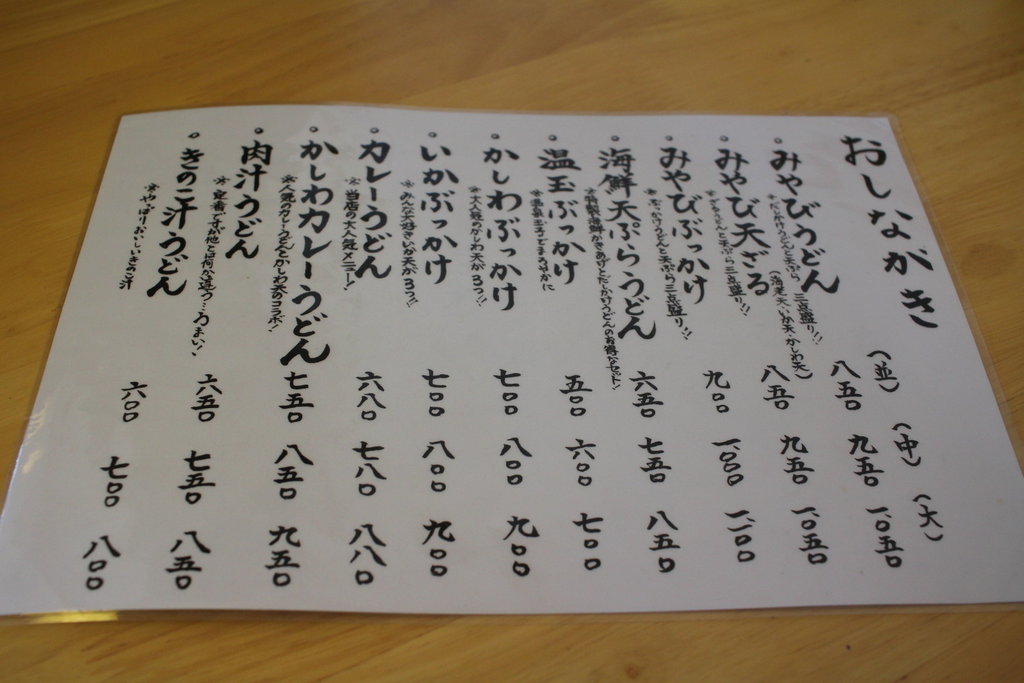 おしながき
(並) (中) (大)
◦みやびうどん 八五〇 九五〇 一、〇五〇
※だしかけうどんと天ぷら三点盛り!!
(海老天・いか天・かしわ天)
◦みやび天ざる 八五〇 九五〇 一、〇五〇
※ざるうどんと天ぷら三点盛り!!
◦みやびぶっかけ 九〇〇 一、〇〇〇 一、一〇〇
※ぶっかけうどんと天ぷら三点盛り!!
◦海鮮天ぷらうどん 六五〇 七五〇 八五〇
※特製海鮮かきあげとだしかけうどんのお得なセット!
◦温玉ぶっかけ 五〇〇 六〇〇 七〇〇
※温泉玉子でまろやかに
◦かしわぶっかけ 七〇〇 八〇〇 九〇〇
※大人気のかしわ天が3つ!!
◦いかぶっかけ 七〇〇 八〇〇 九〇〇
※みんな大好きいか天が3つ!!
◦カレーうどん 六八〇 七八〇 八八〇
※当店の大人気メニュー!
◦かしわカレーうどん 七五〇 八五〇 九五〇
※人気のカレーうどんとかしわ天のコラボ!
◦肉汁うどん 六五〇 七五〇 八五〇
※定番ですが他とは何か違う…うまい!
◦きのこ汁うどん 六〇〇 七〇〇 八〇〇
※やっぱりおいしいきのこ汁